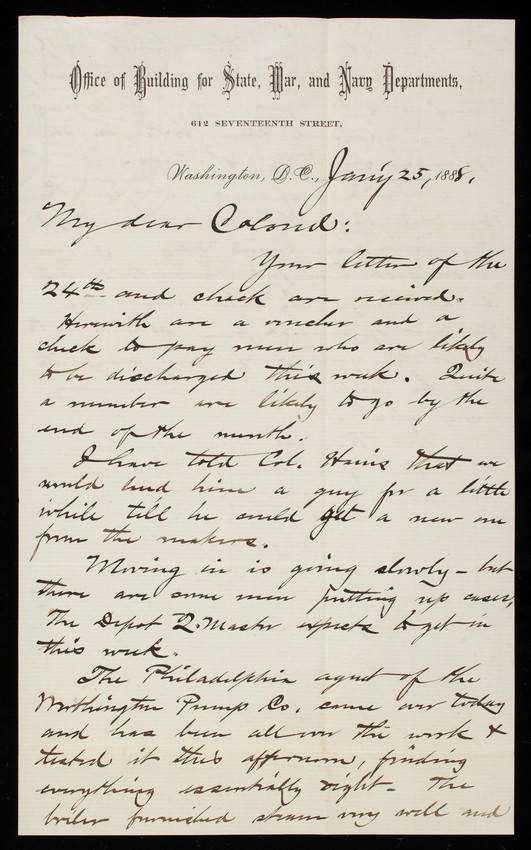 Office of Building for State, War, and Navy Departments,
612 SEVENTEENTH STREET,
Washington, D.C., Jan'y 25, 1888.
My dear Colonel:
Your letter of the
24th and check are received.
Herewith are a voucher and a
check to pay men who are likely
to be discharged this week. Quite
a number are likely to go by the
end of the month.
I have told Col. Hains that we
would lend him a guy for a little
while till he could get a new one
from the makers.
Moving in is going slowly - but
there are some men putting up cases,
The Depot Q.Master expects to get in
this week.
The Philadelphia agent of the
Worthington Pump Co. came over today
and has been all over the work &
tested it this afternoon, finding
everything essentially right - The
boiler furnished steam very well and